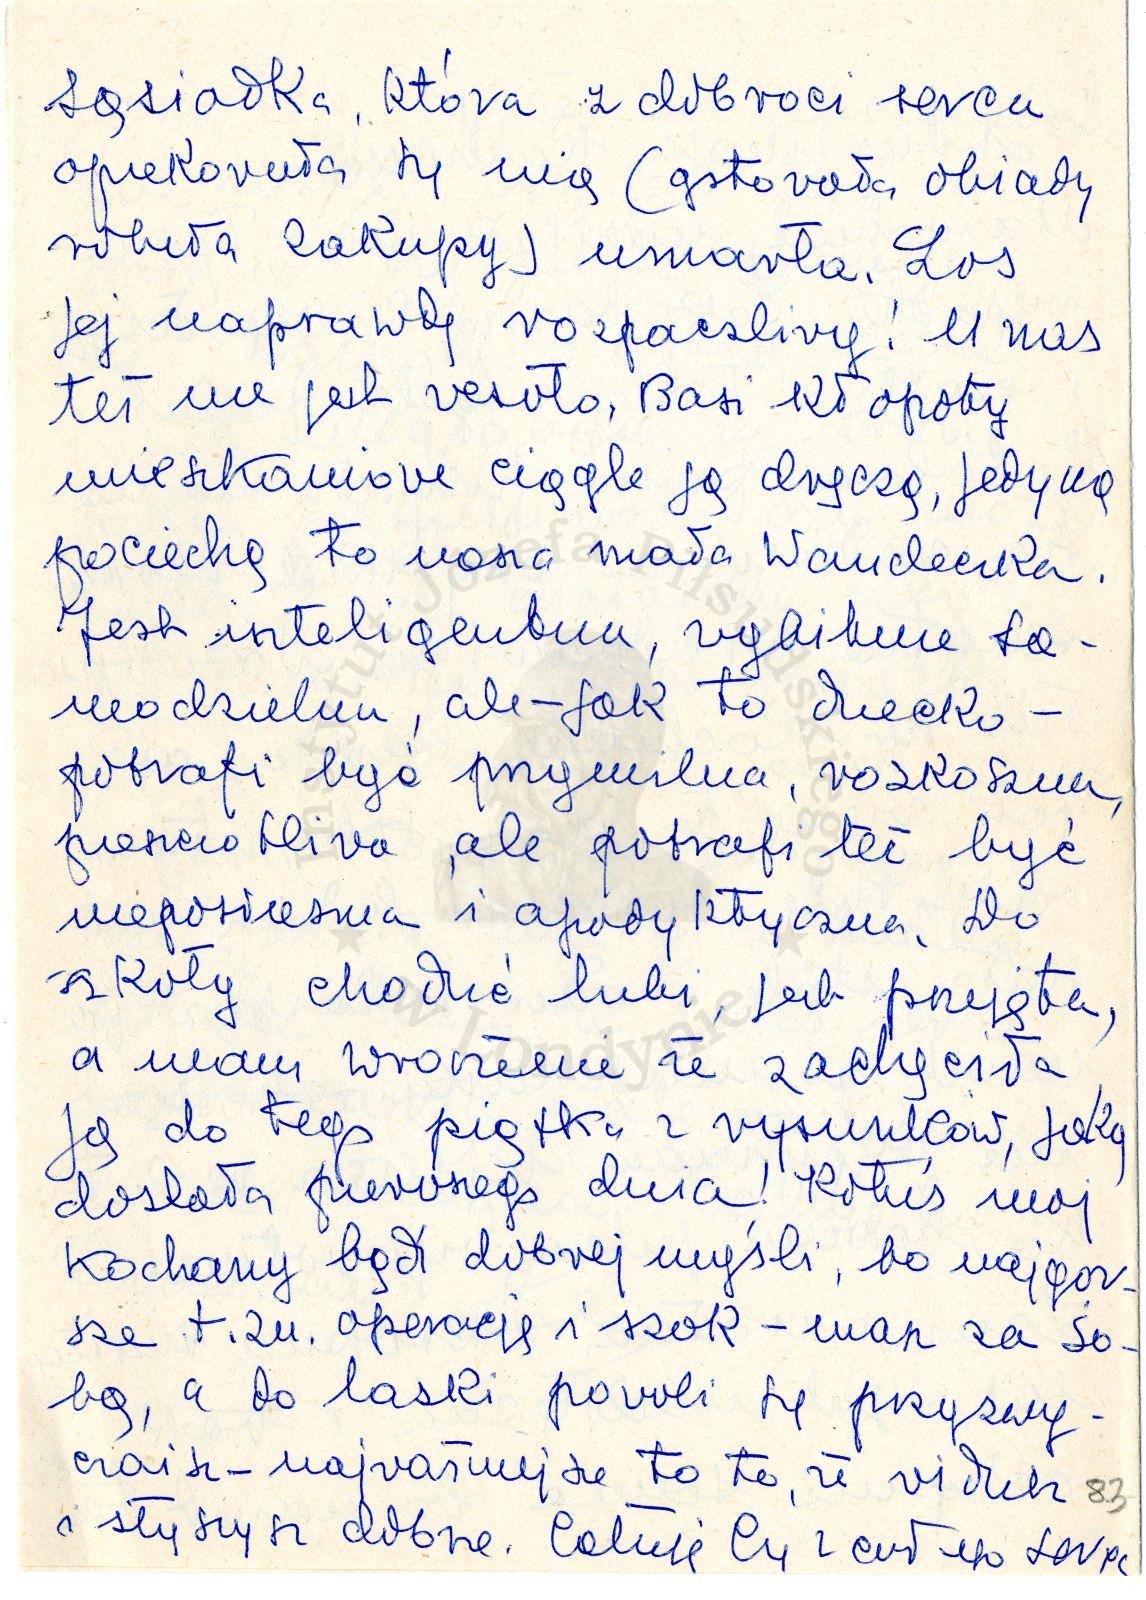 sąsiadka, która z dobroci serca
opiekowała się nią (gotowała obiady
robiła zakupy) umarła. Los
jej naprawdę rozpaczliwy! U nas
też nie jest wesoło, Basi kłopoty
mieszkaniowe ciągle ją dręczą, jedyną
pociechą to nasza mała Wandeczka.
Jest inteligentna, wybitnie sa-
modzielna, ale – jak to dziecko –
potrafi być przymilna, rozkoszna,
pieszczotliwa, ale potrafi też być
nieposłuszna i apodyktyczna. Do
szkoły chodzić lubi, jest przejęta,
a mam wrażenie że zachęciła
ją do tego piątka z rysunków, jaką
dostała pierwszego dnia! Kotuś mój
kochany bądź dobrej myśli, bo najgor-
sze t.zn. operację i szok – masz za so-
bą, a do laski powoli się przyzwy-
czaisz – najważniejsze to to, że widzisz
i słyszysz dobrze. Całuję Cię z całego serca
83
Instytut Józefa Piłsudskiego
w Londynie